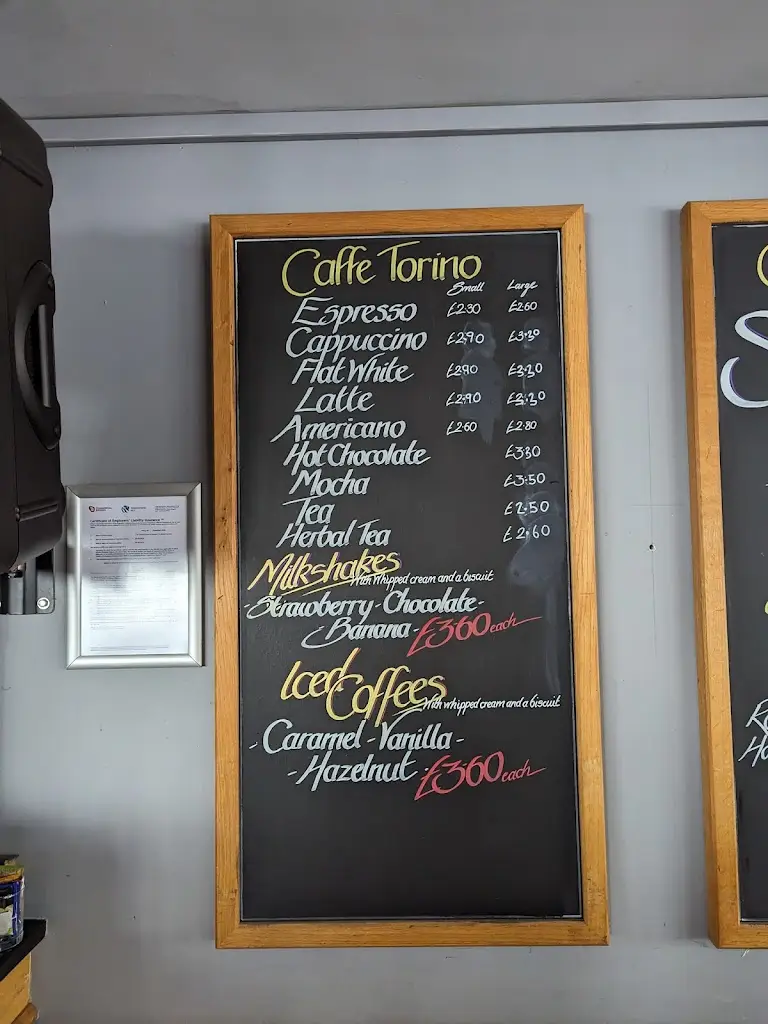 Caffe Torino
Small Large
Espresso £2.30 £2.60
Cappuccino £2.90 £3.30
Flat White £2.90 £3.30
Latte £2.90 £3.30
Americano £2.60 £2.80
Hot Chocolate £3.30
Mocha £3.50
Tea £2.50
Herbal Tea £2.60
Milkshakes With whipped cream and a biscuit
-Strawberry-Chocolate-
Banana-£3.60 each
Iced Coffees With whipped cream and a biscuit
-Caramel-Vanilla-
-Hazelnut-£3.60 each
Certificate of Employers' Liability Insurance